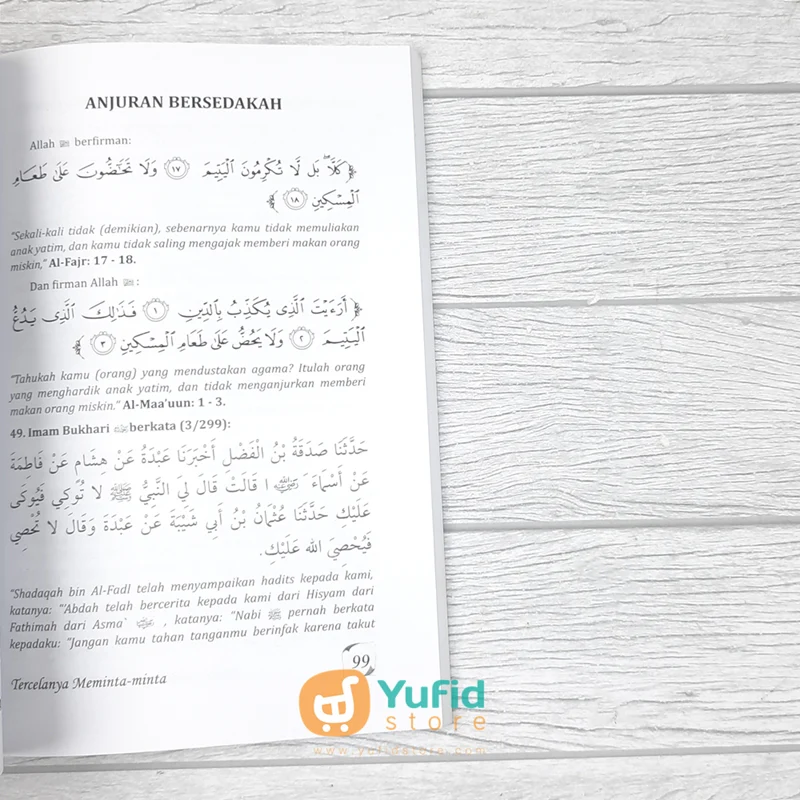 ANJURAN BERSEDAKAH
Allah ﷻ berfirman:
﴿ كَلَّا ۖ بَل لَّا تُكْرِمُونَ الْيَتِيمَ ١٧ وَلَا تَحَاضُّونَ عَلَىٰ طَعَامِ
الْمِسْكِينِ ١٨ ﴾
"Sekali-kali tidak (demikian), sebenarnya kamu tidak memuliakan
anak yatim, dan kamu tidak saling mengajak memberi makan orang
miskin," Al-Fajr: 17 - 18.
Dan firman Allah ﷻ :
﴿ أَرَءَيْتَ الَّذِي يُكَذِّبُ بِالدِّينِ ١ فَذَٰلِكَ الَّذِي يَدُعُّ
الْيَتِيمَ ٢ وَلَا يَحُضُّ عَلَىٰ طَعَامِ الْمِسْكِينِ ٣ ﴾
"Tahukah kamu (orang) yang mendustakan agama? Itulah orang
yang menghardik anak yatim, dan tidak menganjurkan memberi
makan orang miskin." Al-Maa'uun: 1 - 3.
49. Imam Bukhari berkata (3/299):
حَدَّثَنَا صَدَقَةُ بْنُ الْفَضْلِ أَخْبَرَنَا عَبْدَةُ عَنْ هِشَامٍ عَنْ فَاطِمَةَ
عَنْ أَسْمَاءَ ا قَالَتْ قَالَ لِيَ النَّبِيُّ ﷺ لَا تُوكِي فَيُوكَى
عَلَيْكِ حَدَّثَنَا عُثْمَانُ بْنُ أَبِي شَيْبَةَ عَنْ عَبْدَةَ وَقَالَ لَا تُحْصِي
فَيُحْصِيَ اللهُ عَلَيْكِ.
"Shadaqah bin Al-Fadl telah menyampaikan hadits kepada kami,
katanya: "'Abdah telah bercerita kepada kami dari Hisyam dari
Fathimah dari Asma` , katanya: "Nabi ﷺ pernah berkata
kepadaku: "Jangan kamu tahan tanganmu berinfak karena takut
99
Tercelanya Meminta-minta
Yufid
store